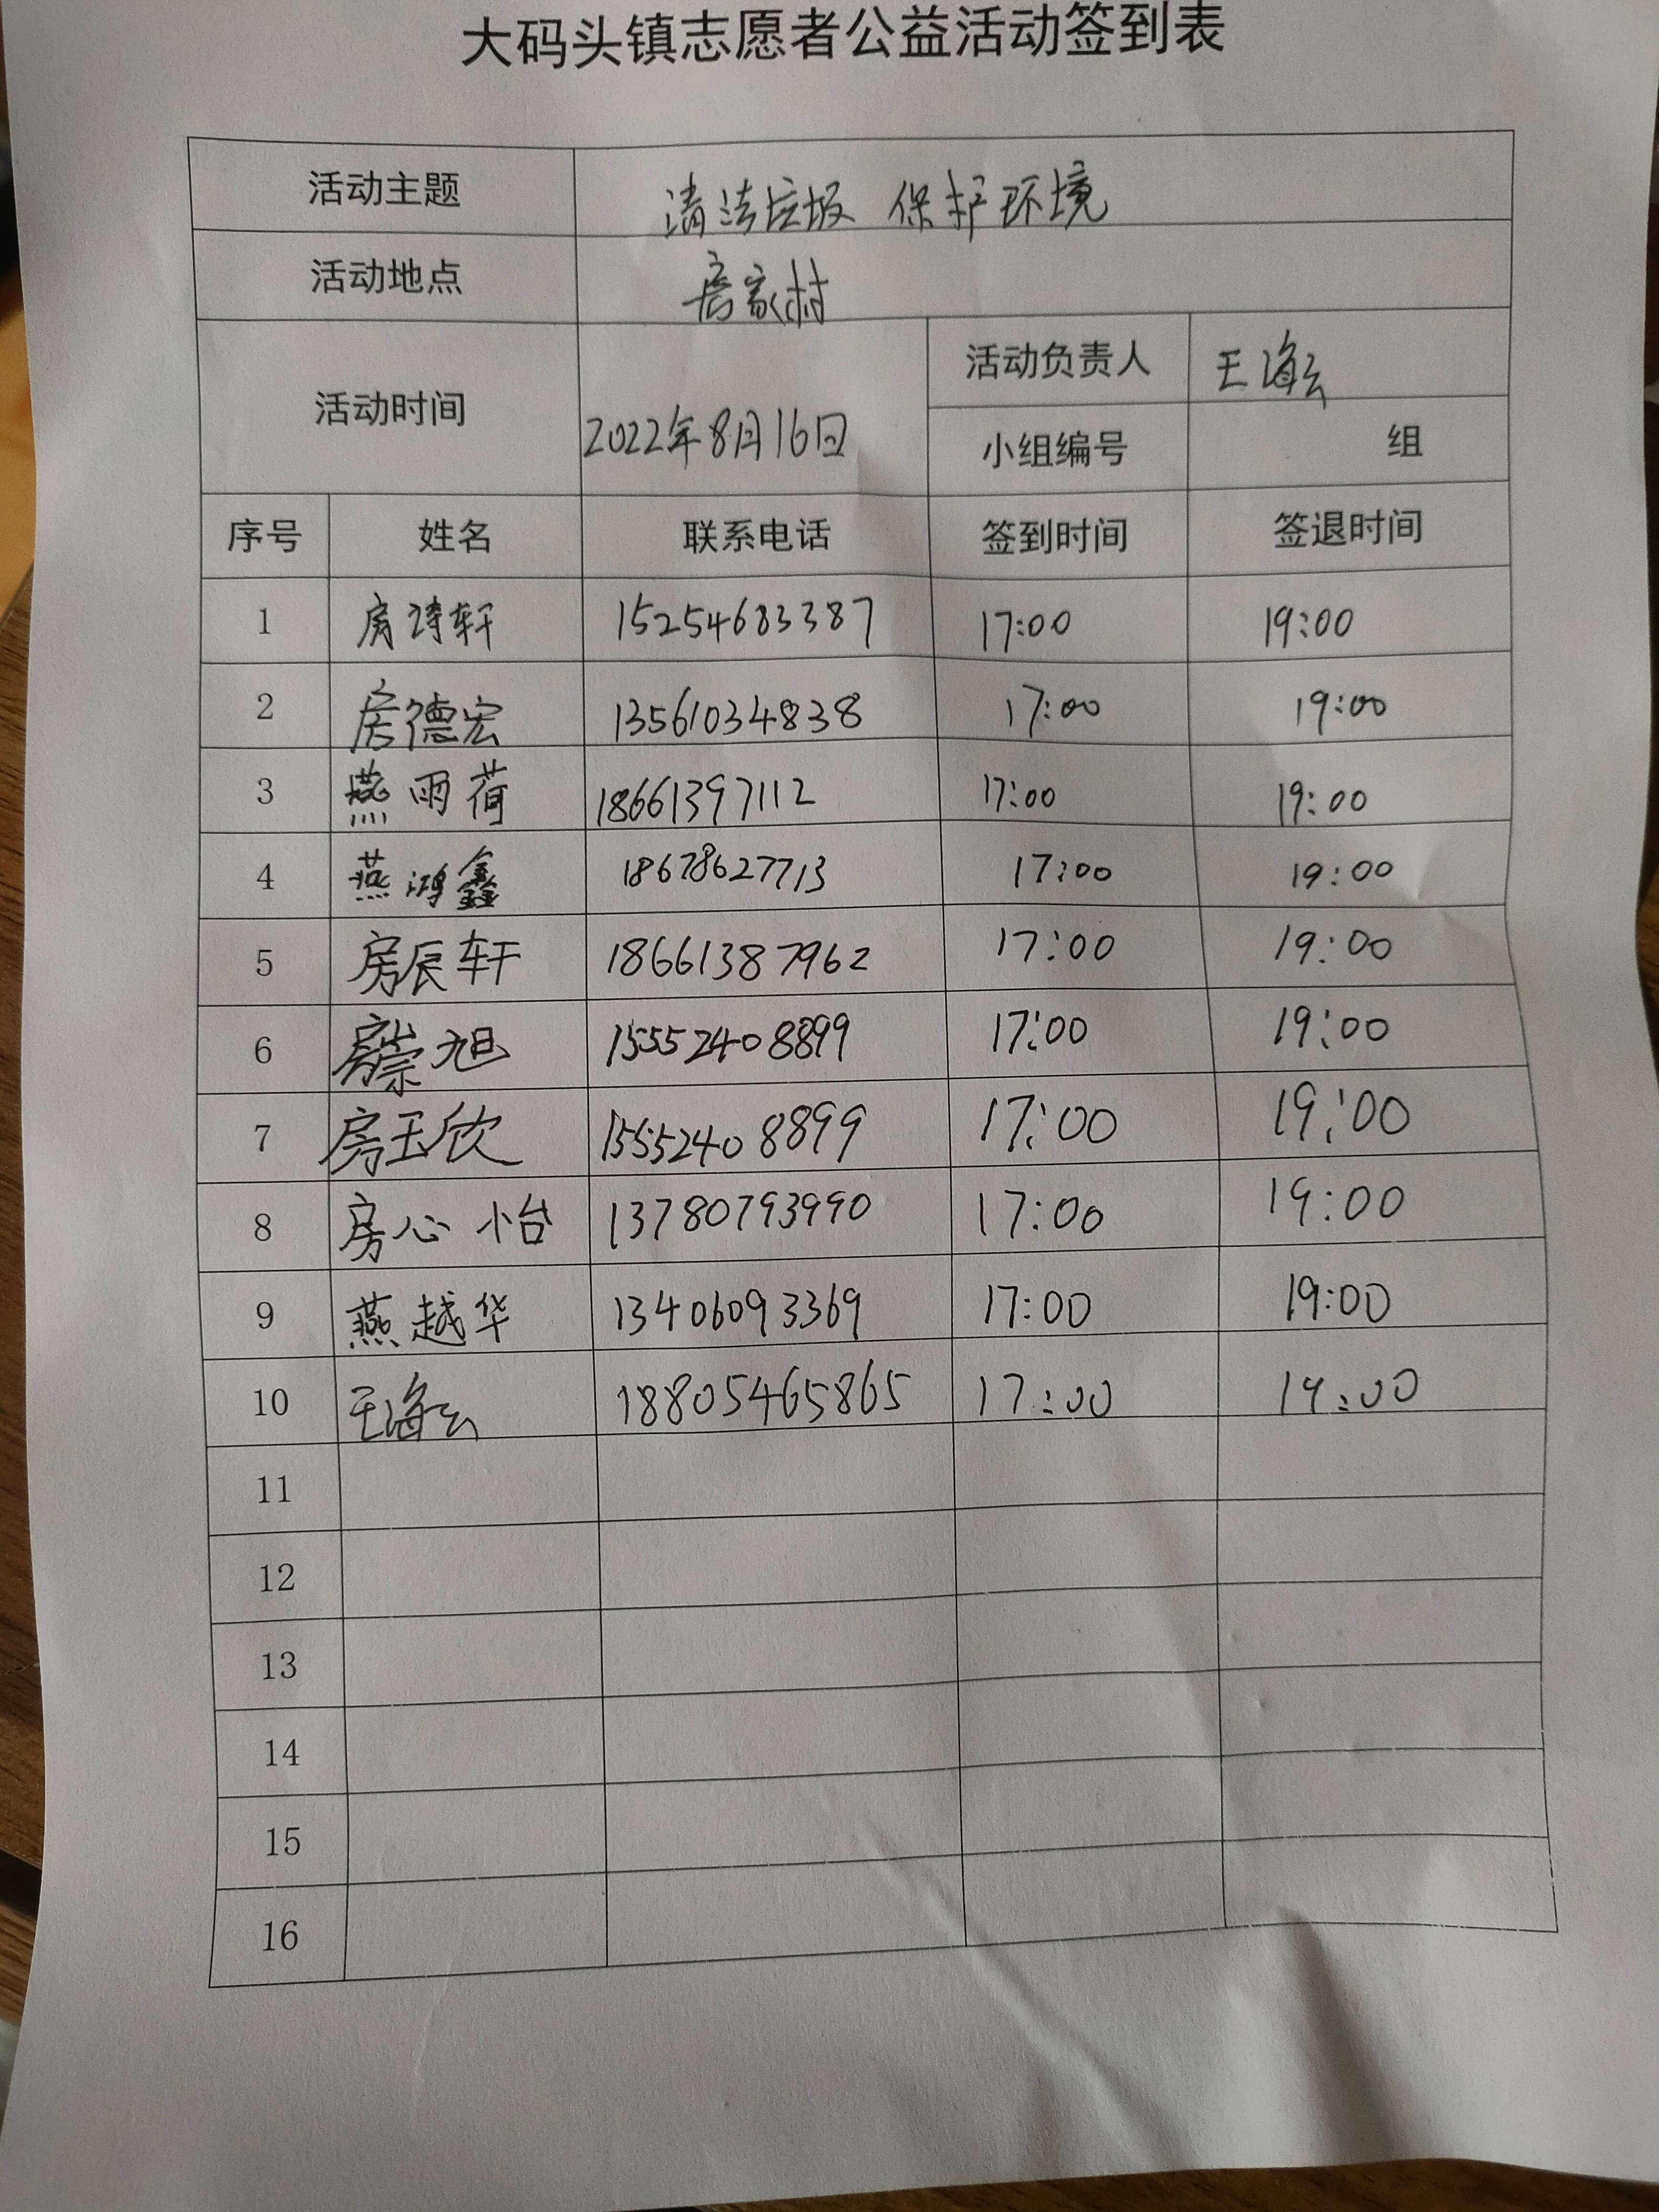 大码头镇志愿者公益活动签到表
活动主题 清洁垃圾 保护环境
活动地点 房家村
活动时间 2022年8月16日 活动负责人 王海云
小组编号 组
序号 姓名 联系电话 签到时间 签退时间
1 房诗轩 15254683387 17:00 19:00
2 房德宏 13561034838 17:00 19:00
3 燕雨荷 18661397112 17:00 19:00
4 燕鸿鑫 18678627713 17:00 19:00
5 房辰轩 18661387962 17:00 19:00
6 房崇旭 15552408899 17:00 19:00
7 房玉欣 15552408899 17:00 19:00
8 房心怡 13780793990 17:00 19:00
9 燕越华 13406093369 17:00 19:00
10 王海云 18805465865 17:00 19:00
11
12
13
14
15
16